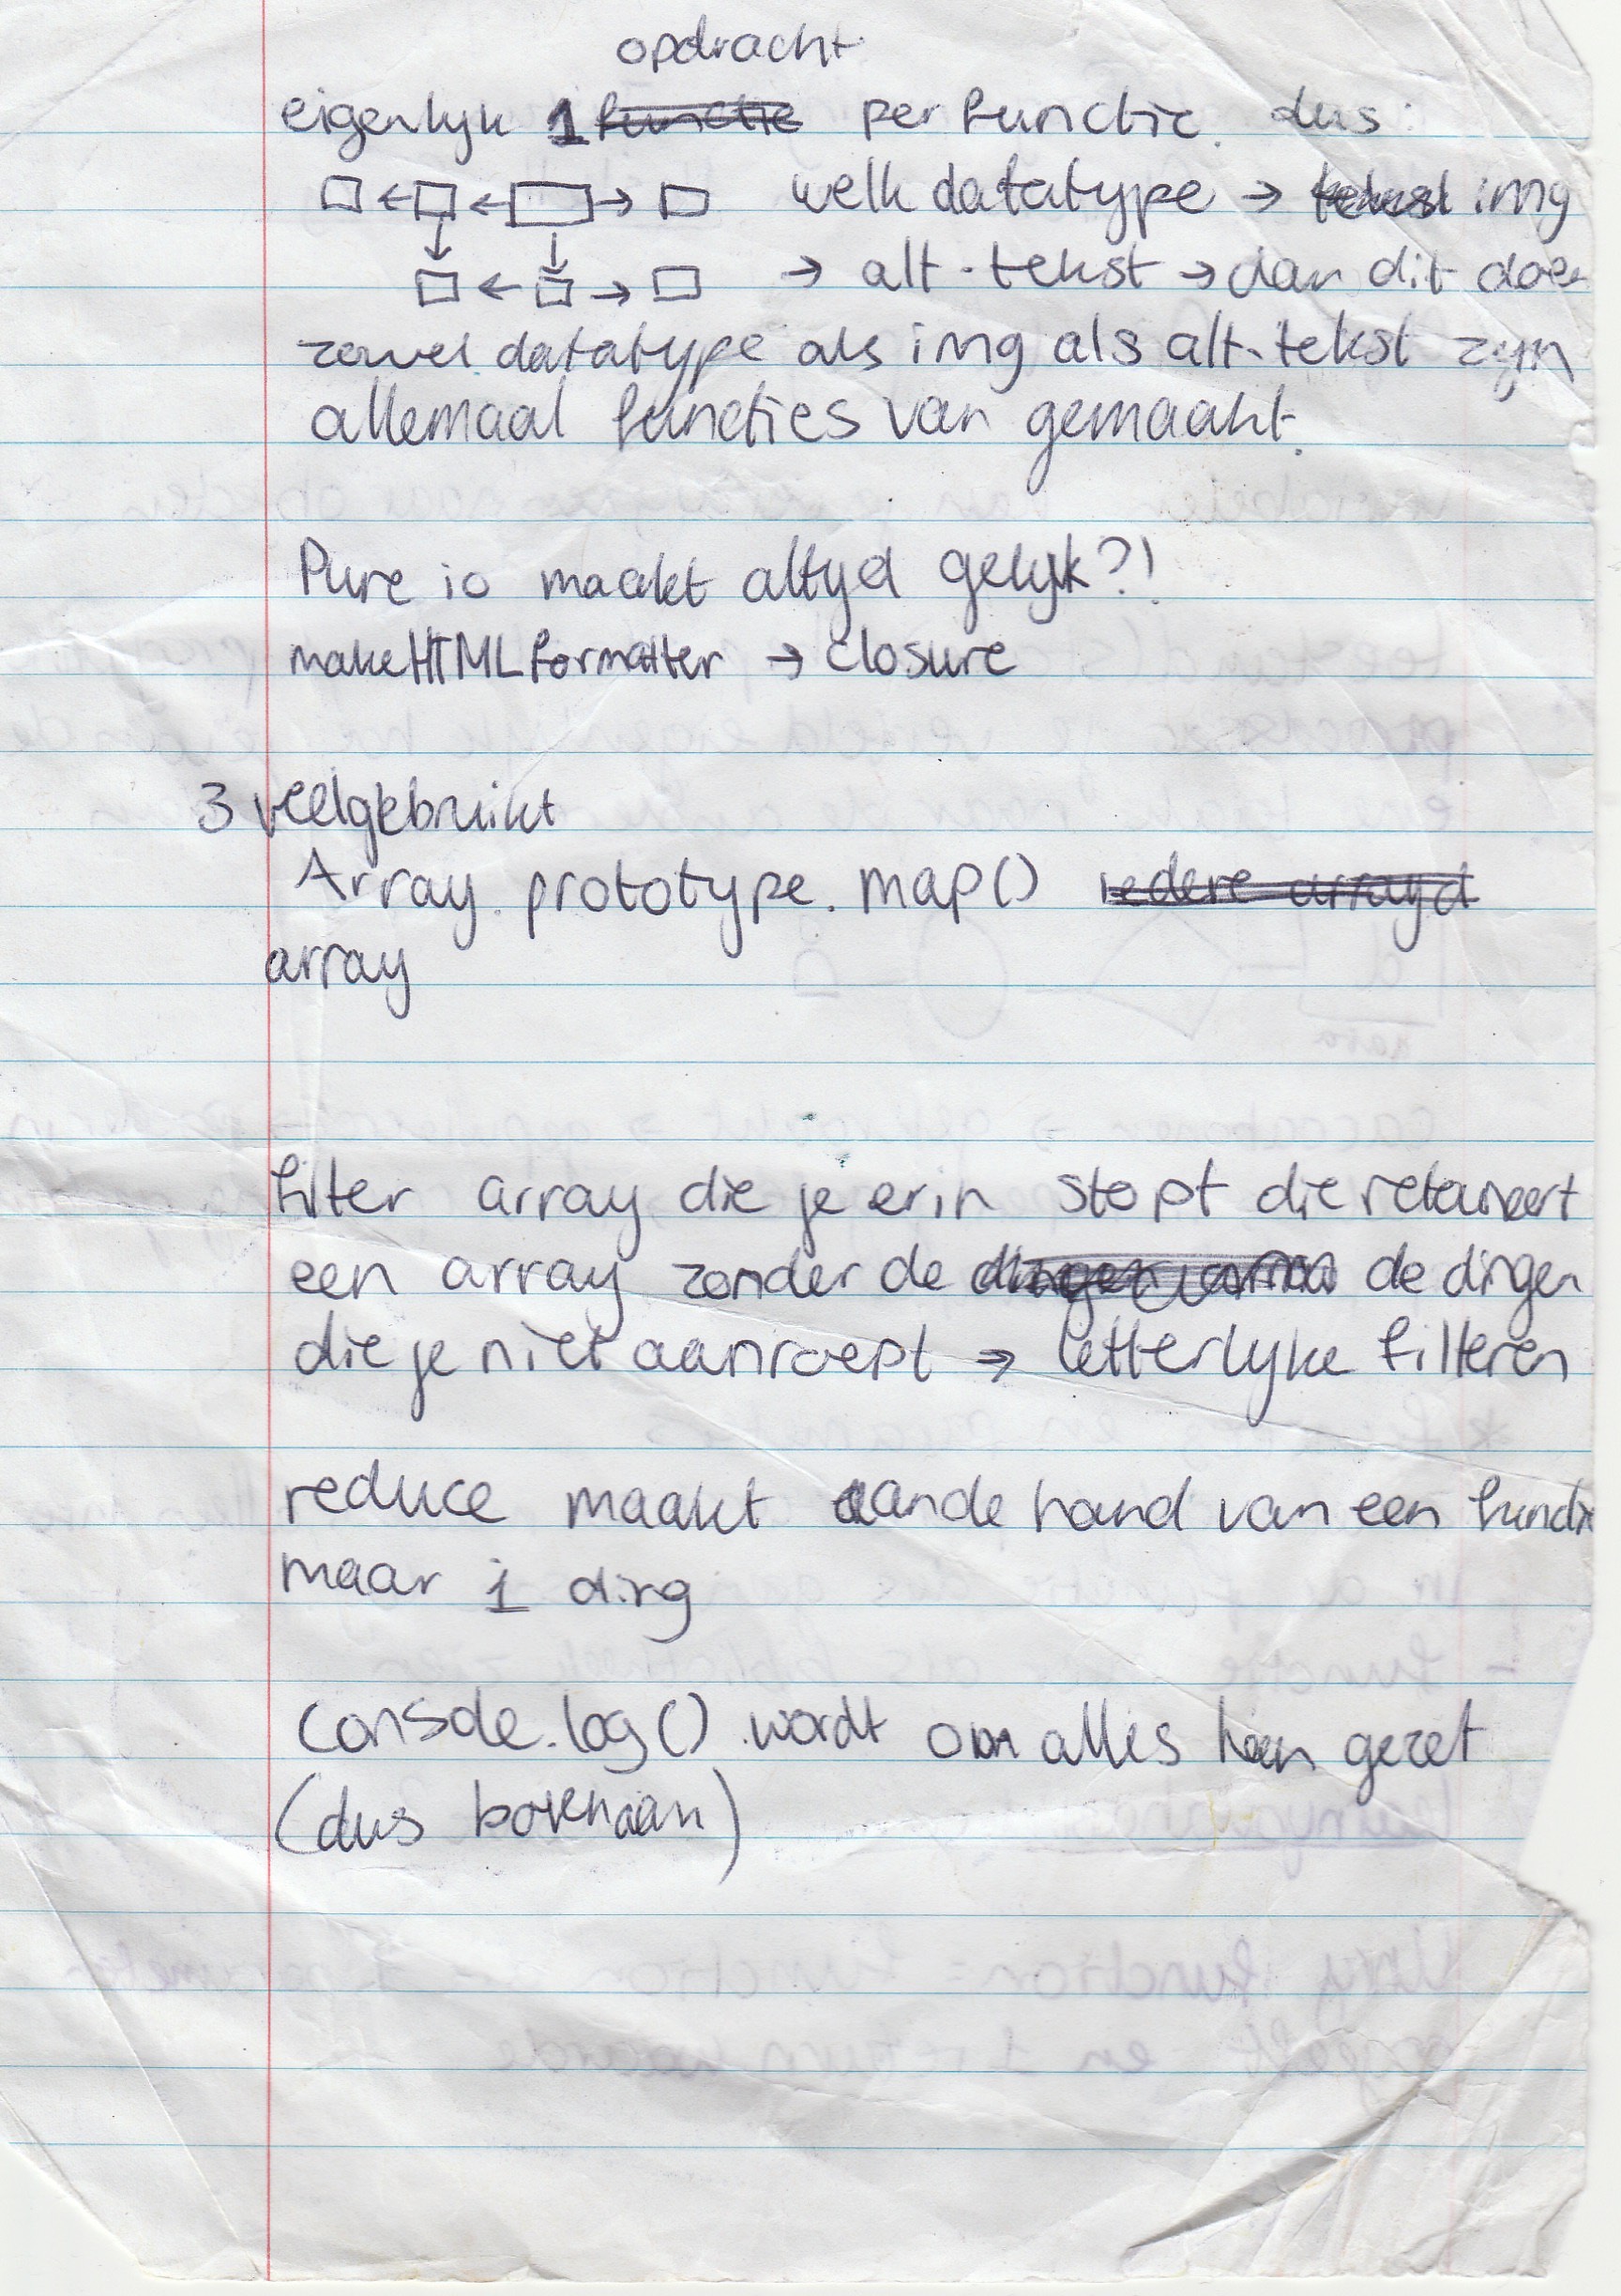 opdracht
eigenlijk 1 functie per functie. dus:
welk datatype → tekst img
→ alt-tekst → dan dit doen
zowel datatype als img als alt-tekst zijn
allemaal functies van gemaakt.
Pure io maakt altijd gelijk?!
makeHTMLformatter → closure
3 veelgebruikt
Array.prototype.map() iedere array d
array
filter array die je erin stopt die retourneert
een array zonder de dingen de dingen
die je niet aanroept → letterlijke filteren
reduce maakt aan de hand van een functie
maar 1 ding
console.log() wordt om alles heen gezet
(dus bovenaan)